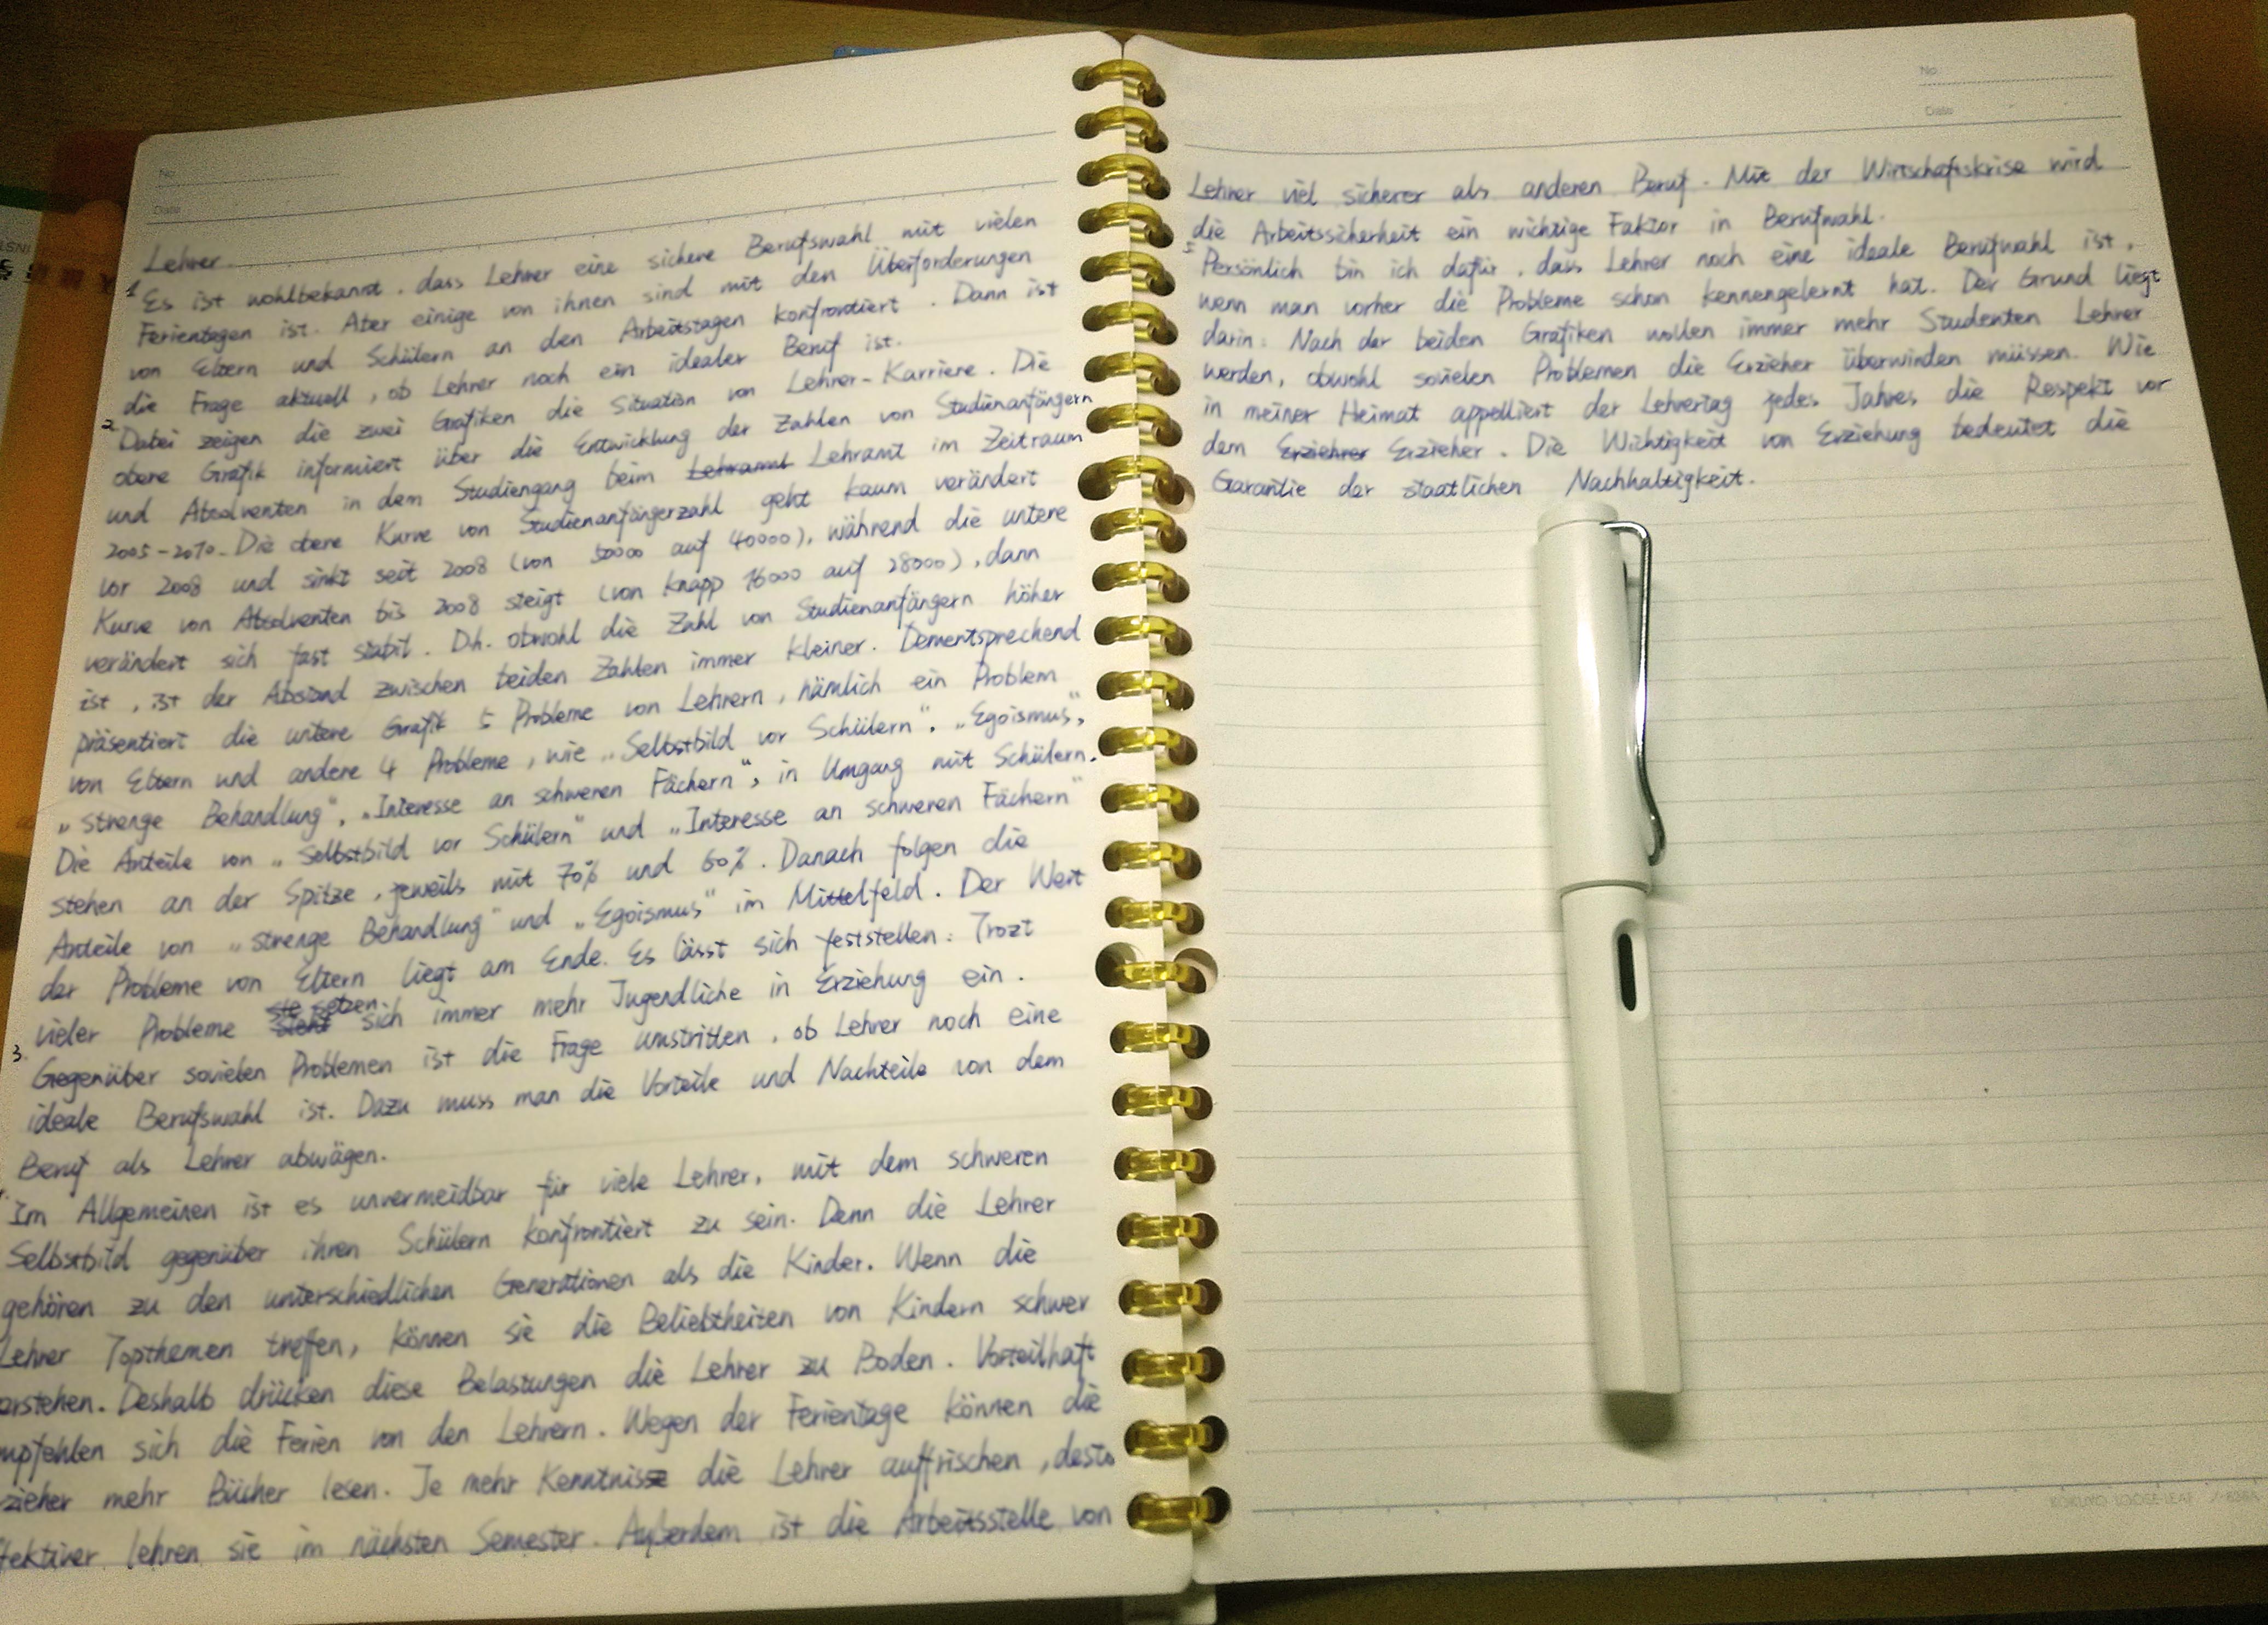 No
Date
Lehrer
1 Es ist wohlbekannt, dass Lehrer eine sichere Berufswahl mit vielen
Ferientagen ist. Aber einige von ihnen sind mit den Überforderungen
von Eltern und Schülern an den Arbeitstagen konfrontiert. Dann ist
die Frage aktuell, ob Lehrer noch ein idealer Beruf ist.
2 Dabei zeigen die zwei Grafiken die Situation von Lehrer-Karriere. Die
obere Grafik informiert über die Entwicklung der Zahlen von Studienanfängern
und Absolventen in dem Studiengang beim Lehramt im Zeitraum
2005-2010. Die obere Kurve von Studienanfängerzahl geht kaum verändert
vor 2008 und sinkt seit 2008 (von 50000 auf 40000), während die untere
Kurve von Absolventen bis 2008 steigt (von knapp 16000 auf 28000), dann
verändert sich fast stabil. D.h. obwohl die Zahl von Studienanfängern höher
ist, ist der Abstand zwischen beiden Zahlen immer kleiner. Dementsprechend
präsentiert die untere Grafik 5 Probleme von Lehrern, nämlich ein Problem
von Eltern und andere 4 Probleme, wie „Selbstbild vor Schülern“, „Egoismus“,
„strenge Behandlung“, „Interesse an schweren Fächern“, in Umgang mit Schülern.
Die Anteile von „Selbstbild vor Schülern“ und „Interesse an schweren Fächern“
stehen an der Spitze, jeweils mit 70% und 60%. Danach folgen die
Anteile von „strenge Behandlung“ und „Egoismus“ im Mittelfeld. Der Wert
der Probleme von Eltern liegt am Ende. Es lässt sich feststellen: Trozt
vieler Probleme setzen sich immer mehr Jugendliche in Erziehung ein.
3. Gegenüber sovielen Problemen ist die Frage umstritten, ob Lehrer noch eine
ideale Berufswahl ist. Dazu muss man die Vorteile und Nachteile von dem
Beruf als Lehrer abwägen.
Im Allgemeinen ist es unvermeidbar für viele Lehrer, mit dem schweren
Selbstbild gegenüber ihren Schülern konfrontiert zu sein. Denn die Lehrer
gehören zu den unterschiedlichen Generationen als die Kinder. Wenn die
Lehrer Topthemen treffen, können sie die Beliebtheiten von Kindern schwer
erstehen. Deshalb drücken diese Belastungen die Lehrer zu Boden. Vorteilhaft
mpfehlen sich die Ferien von den Lehrern. Wegen der Ferientage können die
zieher mehr Bücher lesen. Je mehr Kenntnisse die Lehrer auffrischen, desto
fektiver lehren sie im nächsten Semester. Außerdem ist die Arbeitsstelle von
No
Date
Lehrer viel sicherer als anderen Beruf. Mit der Wirtschaftskrise wird
die Arbeitssicherheit ein wichtige Faktor in Berufwahl.
5 Persönlich bin ich dafür, dass Lehrer noch eine ideale Berufwahl ist,
wenn man vorher die Probleme schon kennengelernt hat. Der Grund liegt
darin: Nach der beiden Grafiken wollen immer mehr Studenten Lehrer
werden, obwohl sovielen Problemen die Erzieher überwinden müssen. Wie
in meiner Heimat appelliert der Lehrertag jedes Jahres die Respekt vor
dem Erziehrer Erzieher. Die Wichtigkeit von Erziehung bedeutet die
Garantie der staatlichen Nachhaltigkeit.
KOKUYO LOOSE-LEAF